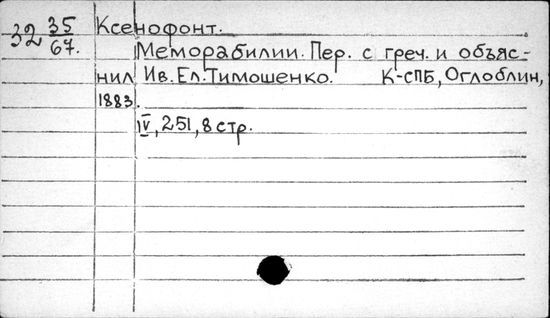 32 35/67. Ксенофонт.
Меморабилии. Пер. с греч. и объяс-
нил Ив. Ел. Тимошенко. К-СПБ, Оглоблин,
1883.
IV, 251, 8 стр.